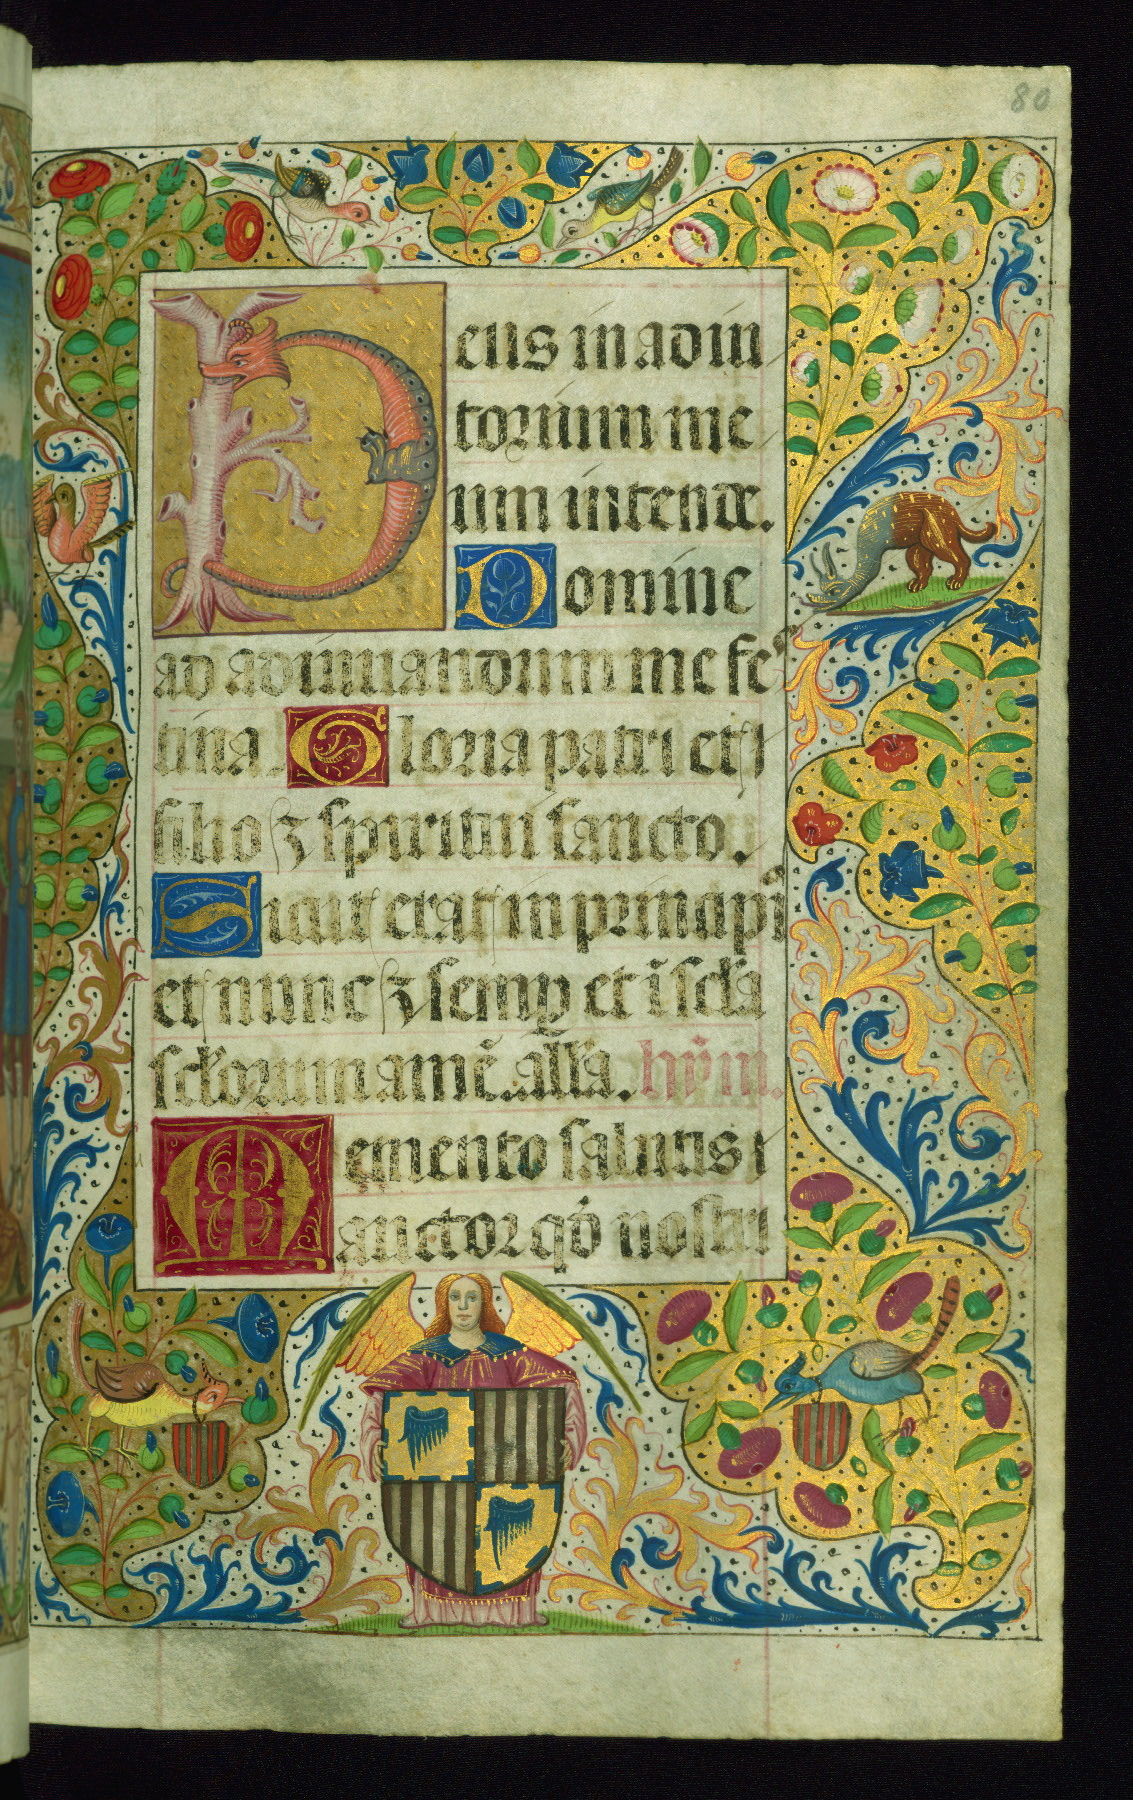 80
Deus in adiu
torium me
um intende.
Domine
ad adiuuandum me fes
tina. Gloria patri et
filio ⁊ spiritui sancto.
Sicut erat in principi
et nunc ⁊ semꝑ et ī sc̄la
sc̄lorum amē. all̄a. hỹm.
Memento salutis
auctor qd̄ nostri